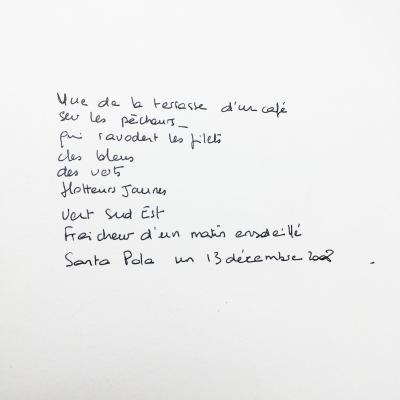 Vue de la terrasse d'un café
sur les pêcheurs_
qui ravodent les filets
des bleus
des verts
flotteurs jaunes
vent sud Est
Fraicheur d'un matin ensoleillé
Santa Pola un 13 décembre 2008